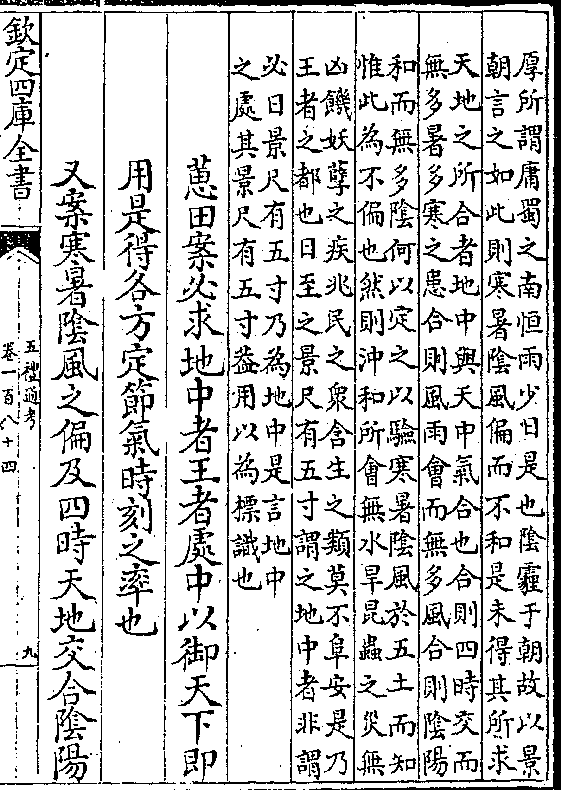 厚所謂庸蜀之南恒雨少日是也陰霾于朝故以景
朝言之如此則寒暑陰風偏而不和是未得其所求
天地之所合者地中與天中氣合也合則四時交而
無多暑多寒之患合則風雨會而無多風合則陰陽
和而無多陰何以定之以驗寒暑陰風於五土而知
惟此為不偏也然則沖和所會無水旱昆蟲之災無
凶饑妖孽之疾兆民之衆含生之類莫不阜安是乃
王者之都也日至之景尺有五寸謂之地中者非謂
必日景尺有五寸乃為地中是言地中
之處其景尺有五寸葢用以為標識也
蕙田案必求地中者王者處中以御天下即
用是得各方定節氣時刻之率也
又案寒暑陰風之偏及四時天地交合陰陽
欽定四庫全書
五禮通考
卷一百八十四
九